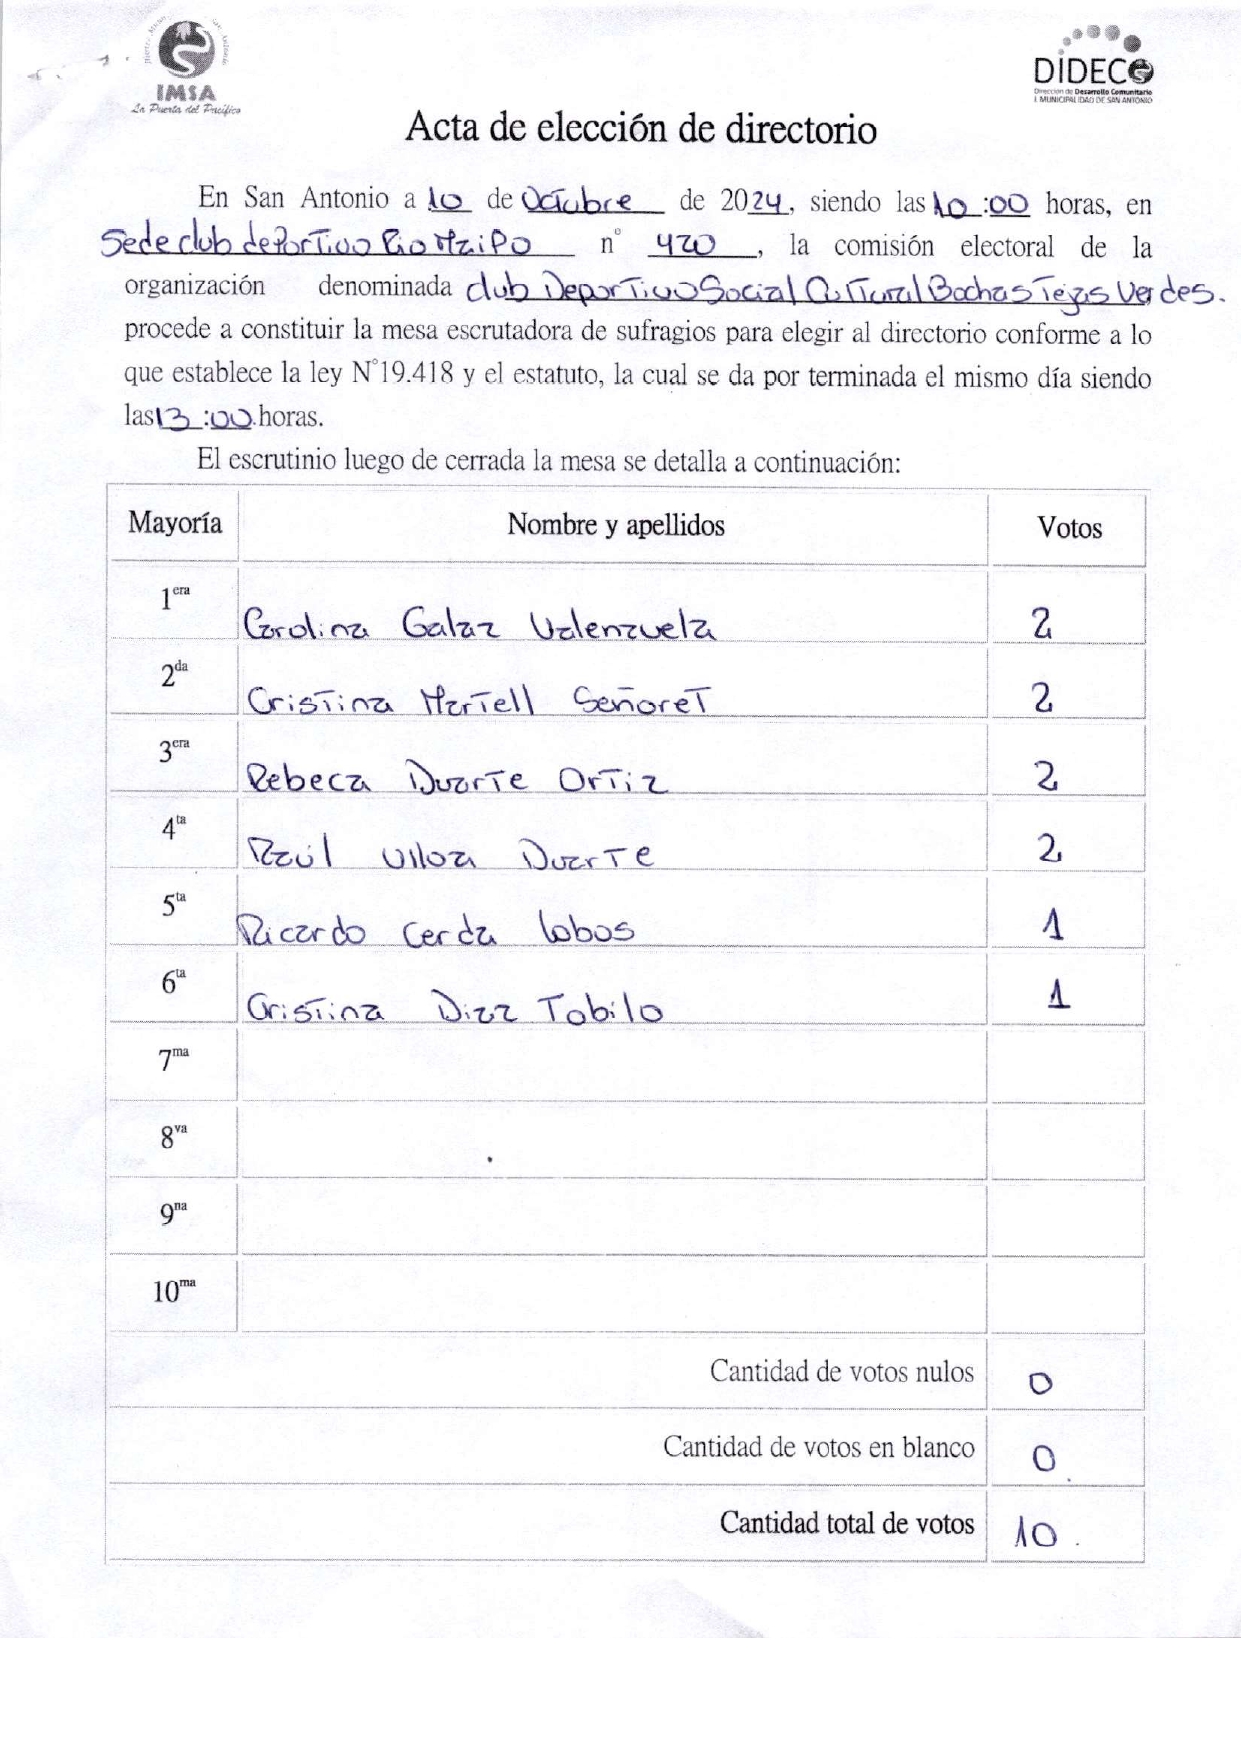 IMSA
La Puerta del Pacífico
DIDECO
Dirección de Desarrollo Comunitario
I. MUNICIPALIDAD DE SAN ANTONIO
Acta de elección de directorio
En San Antonio a 10 de Octubre de 2024, siendo las 10:00 horas, en
Sede club deportivo Rio Maipo n° 420, la comisión electoral de la
organización denominada club Deportivo Social Cultural Bochas Tejas Verdes.
procede a constituir la mesa escrutadora de sufragios para elegir al directorio conforme a lo
que establece la ley N°19.418 y el estatuto, la cual se da por terminada el mismo día siendo
las 13:00 horas.
El escrutinio luego de cerrada la mesa se detalla a continuación:
Mayoría Nombre y apellidos Votos
1era Carolina Galaz Valenzuela 2
2da Cristina Martell Señoret 2
3era Rebeca Duarte Ortiz 2
4ta Raúl Ulloa Duarte 2
5ta Ricardo Cerda lobos 1
6ta Cristina Diaz Tobilo 1
7ma
8va
9na
10ma
Cantidad de votos nulos 0
Cantidad de votos en blanco 0
Cantidad total de votos 10